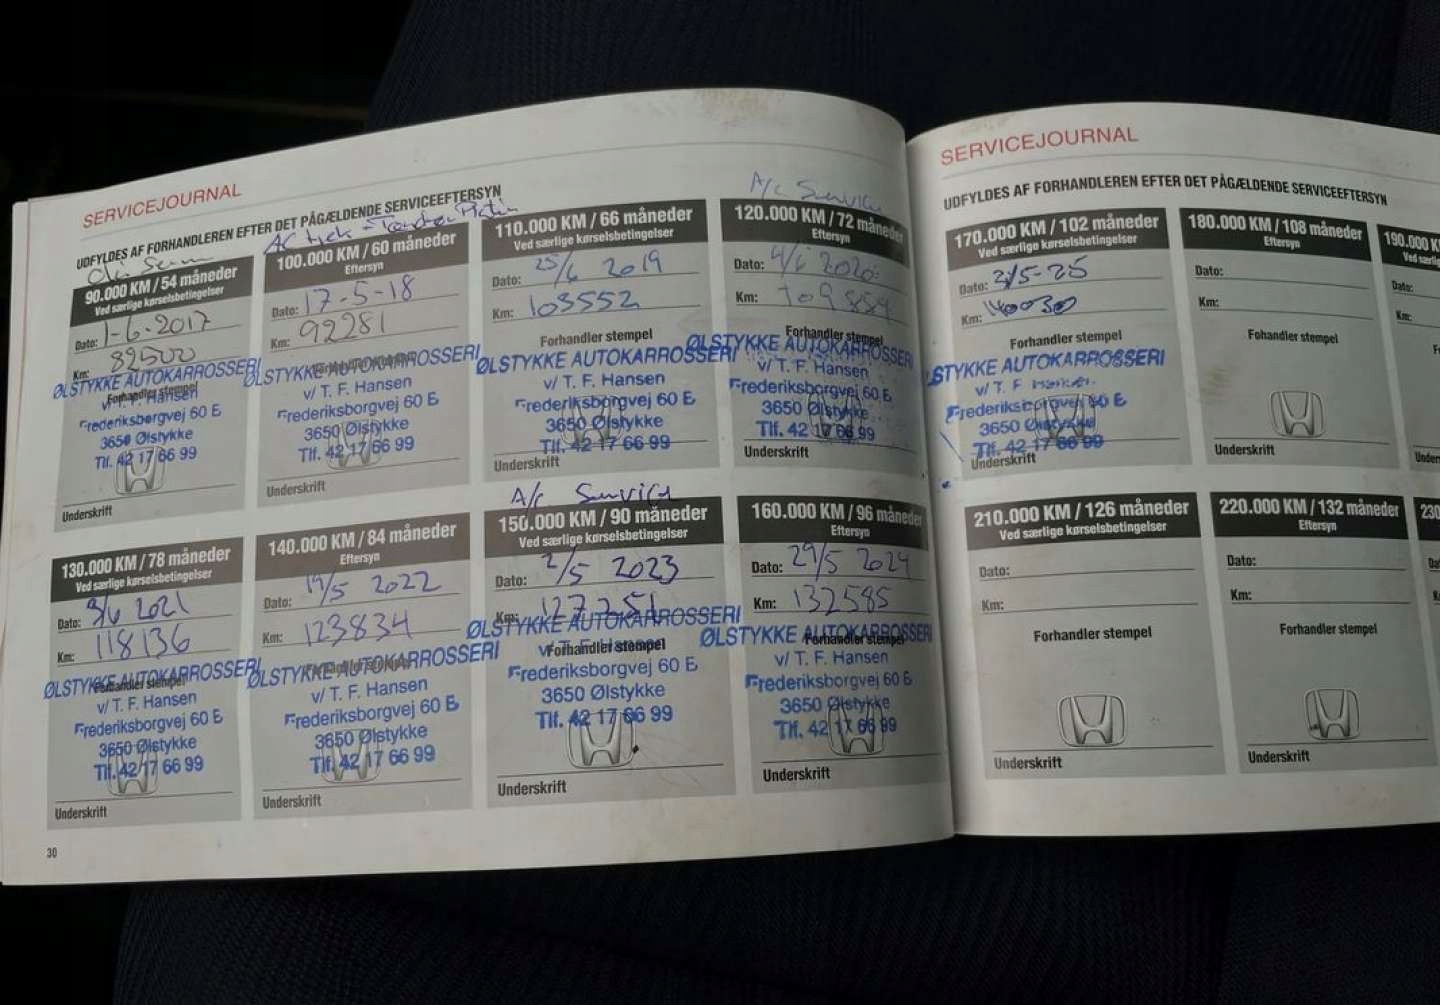 SERVICEJOURNAL
UDFYLDES AF FORHANDLEREN EFTER DET PÅGÆLDENDE SERVICEEFTERSYN
90.000 KM / 54 måneder
Ved særlige kørselsbetingelser
Dato: 1-6-2017
Km: 82500
Forhandler stempel
ØLSTYKKE AUTOKARROSSERI
v/ T. F. Hansen
Frederiksborgvej 60 E
3650 Ølstykke
Tlf. 42 17 66 99
Underskrift
AC
100.000 KM / 60 måneder
Eftersyn
Dato: 17-5-18
Km: 92281
ØLSTYKKE AUTOKARROSSERI
v/ T. F. Hansen
Frederiksborgvej 60 E
3650 Ølstykke
Tlf. 42 17 66 99
Underskrift
110.000 KM / 66 måneder
Ved særlige kørselsbetingelser
Dato: 25/6 2019
Km: 103552
Forhandler stempel
ØLSTYKKE AUTOKARROSSERI
v/ T. F. Hansen
Frederiksborgvej 60 E
3650 Ølstykke
Tlf. 42 17 66 99
Underskrift
A/c Service
120.000 KM / 72 måneder
Eftersyn
Dato: 4/6 2020
Km: 109884
Forhandler stempel
ØLSTYKKE AUTOKARROSSERI
v/ T. F. Hansen
Frederiksborgvej 60 E
3650 Ølstykke
Tlf. 42 17 66 99
Underskrift
130.000 KM / 78 måneder
Ved særlige kørselsbetingelser
Dato: 3/6 2021
Km: 118136
Forhandler stempel
ØLSTYKKE AUTOKARROSSERI
v/ T. F. Hansen
Frederiksborgvej 60 E
3650 Ølstykke
Tlf. 42 17 66 99
Underskrift
140.000 KM / 84 måneder
Eftersyn
Dato: 19/5 2022
Km: 123834
ØLSTYKKE AUTOKARROSSERI
v/ T. F. Hansen
Frederiksborgvej 60 E
3650 Ølstykke
Tlf. 42 17 66 99
Underskrift
A/c Service
150.000 KM / 90 måneder
Ved særlige kørselsbetingelser
Dato: 2/5 2023
Km: 127251
ØLSTYKKE AUTOKARROSSERI
v/ T. F. Hansen
Forhandler stempel
Frederiksborgvej 60 E
3650 Ølstykke
Tlf. 42 17 66 99
Underskrift
160.000 KM / 96 måneder
Eftersyn
Dato: 29/5 2024
Km: 132585
ØLSTYKKE AUTOKARROSSERI
Forhandler stempel
v/ T. F. Hansen
Frederiksborgvej 60 E
3650 Ølstykke
Tlf. 42 17 66 99
Underskrift
30
SERVICEJOURNAL
UDFYLDES AF FORHANDLEREN EFTER DET PÅGÆLDENDE SERVICEEFTERSYN
170.000 KM / 102 måneder
Ved særlige kørselsbetingelser
Dato: 21/5-25
Km: 140030
Forhandler stempel
ØLSTYKKE AUTOKARROSSERI
v/ T. F. Hansen
Frederiksborgvej 60 E
3650 Ølstykke
Tlf. 42 17 66 99
Underskrift
180.000 KM / 108 måneder
Eftersyn
Dato:
Km:
Fohandler stempel
Underskrift
190.000 K
Ved særlig
Dato:
Km:
Under
210.000 KM / 126 måneder
Ved særlige kørselsbetingelser
Dato:
Km:
Forhandler stempel
Underskrift
220.000 KM / 132 måneder
Eftersyn
Dato:
Km:
Forhandler stempel
Underskrift
230
Km